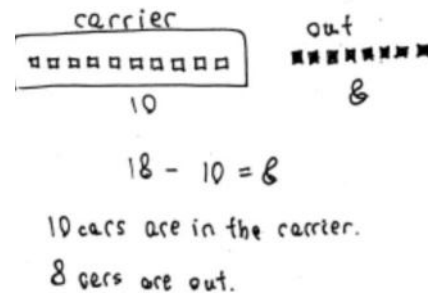 carrier
out
10
8
18 - 10 = 8
10 cars are in the carrier.
8 cers are out.